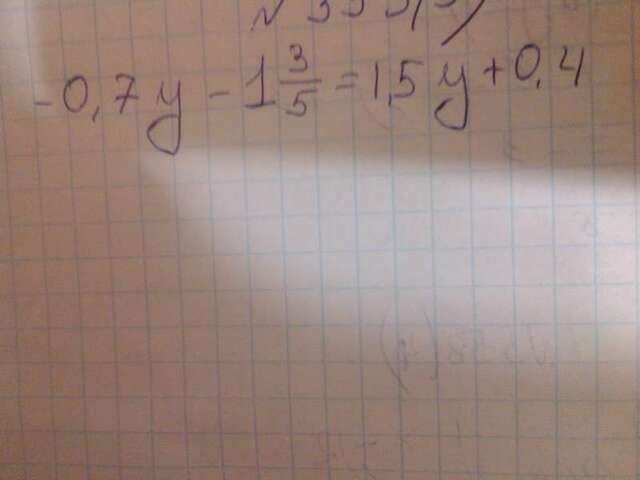 -0,7y - 1 3/5 = 1,5y + 0,4